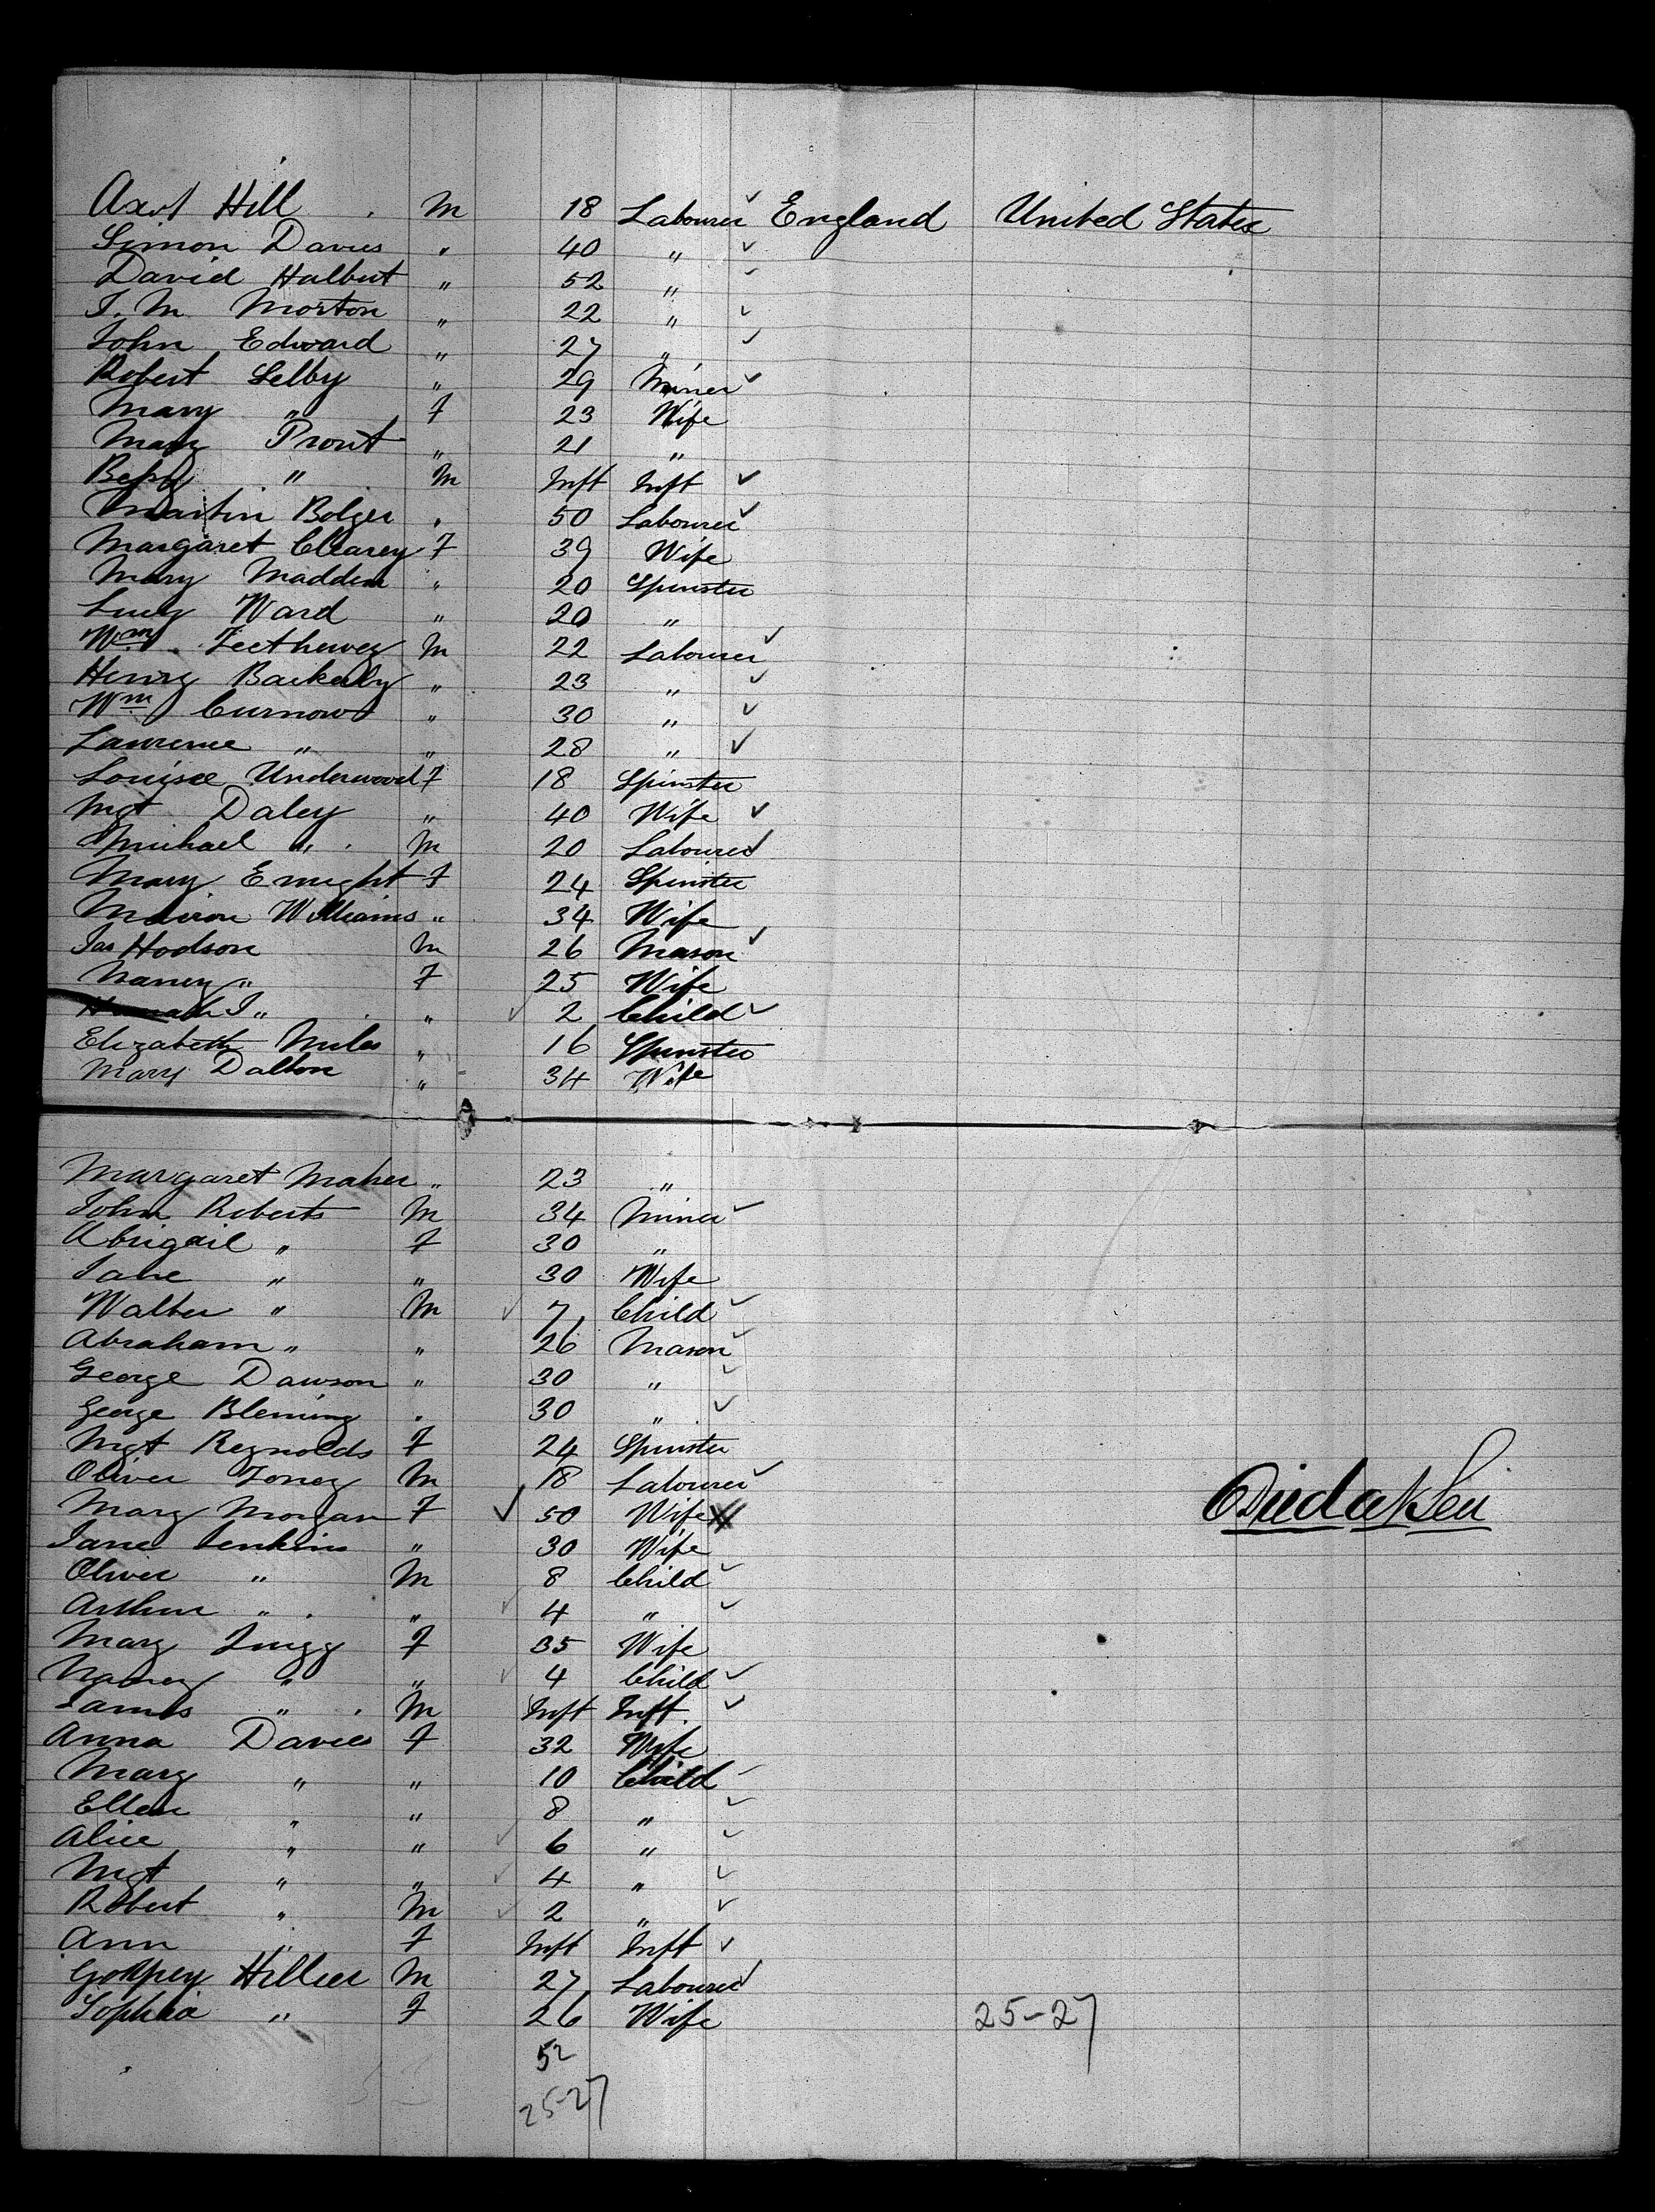 Axel Hill M 18 Labourer England United States
Simon Davies " 40 "
David Halbert " 52 "
T. M. Morton " 22 "
John Edward " 27 "
Robert Selby " 29 Miner
Mary " F 23 Wife
Mary Prout " 21 "
" M Inft Inft
Martin Bolger " 50 Labourer
Margaret Clearey F 39 Wife
Mary Madden " 20 Spinster
Lucy Ward " 20 "
Wm M 22 Labourer
Henry " 23 "
Wm Curnow " 30 "
Lawrence " " 28 "
Louise Underwood F 18 Spinster
Mgt Daley " 40 Wife
Michael " M 20 Labourer
Mary Enright F 24 Spinster
Williams " 34 Wife
Jas Hodson M 26 Mason
Nancy " F 25 Wife
Hannah J " " 2 Child
Elizabeth Miles " 16 Spinster
Mary Dalton " 34 Wife
Margaret Maher " 23 "
John Roberts M 34 Miner
Abigail " F 30 "
Jane " " 30 Wife
Walter " M 7 Child
Abraham " " 26 Mason
George Dawson " 30 "
George Bleming " 30 "
Mgt Reynolds F 24 Spinster
Oliver M 18 Labourer
Mary Morgan F 50 Wife X Died at Sea
Jane Jenkins " 30 Wife
Oliver " M 8 Child
Arthur " " 4 "
Mary F 35 Wife
Nancy " " 4 Child
James " M Inft Inft.
Anna Davies F 32 Wife
Mary " " 10 Child
Ellen " " 8 "
Alice " " 6 "
Mgt " " 4 "
Robert " M 2 "
Ann " F Inft Inft
Godfrey Hillier M 27 Labourer
Sophia " F 26 Wife 25-27
52
25-27